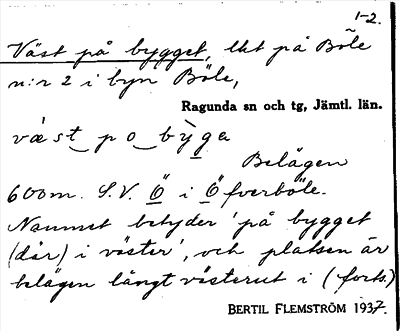 1-2.
Väst på bygget, lht på Böle
n:r 2 i byn Böle,
Ragunda sn och tg, Jämtl. län.
væst po byga
Belägen
600 m. S.V. Ö i Öfverböle.
Namnet betyder 'på bygget
(där) i väster', och platsen är
belägen långt västerut i (forts.)
BERTIL FLEMSTRÖM 1937.